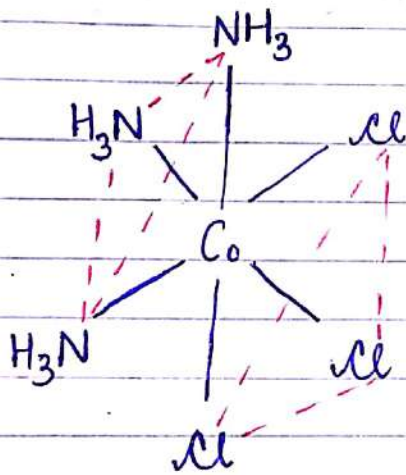 NH3
H3N Cl
Co
H3N Cl
Cl